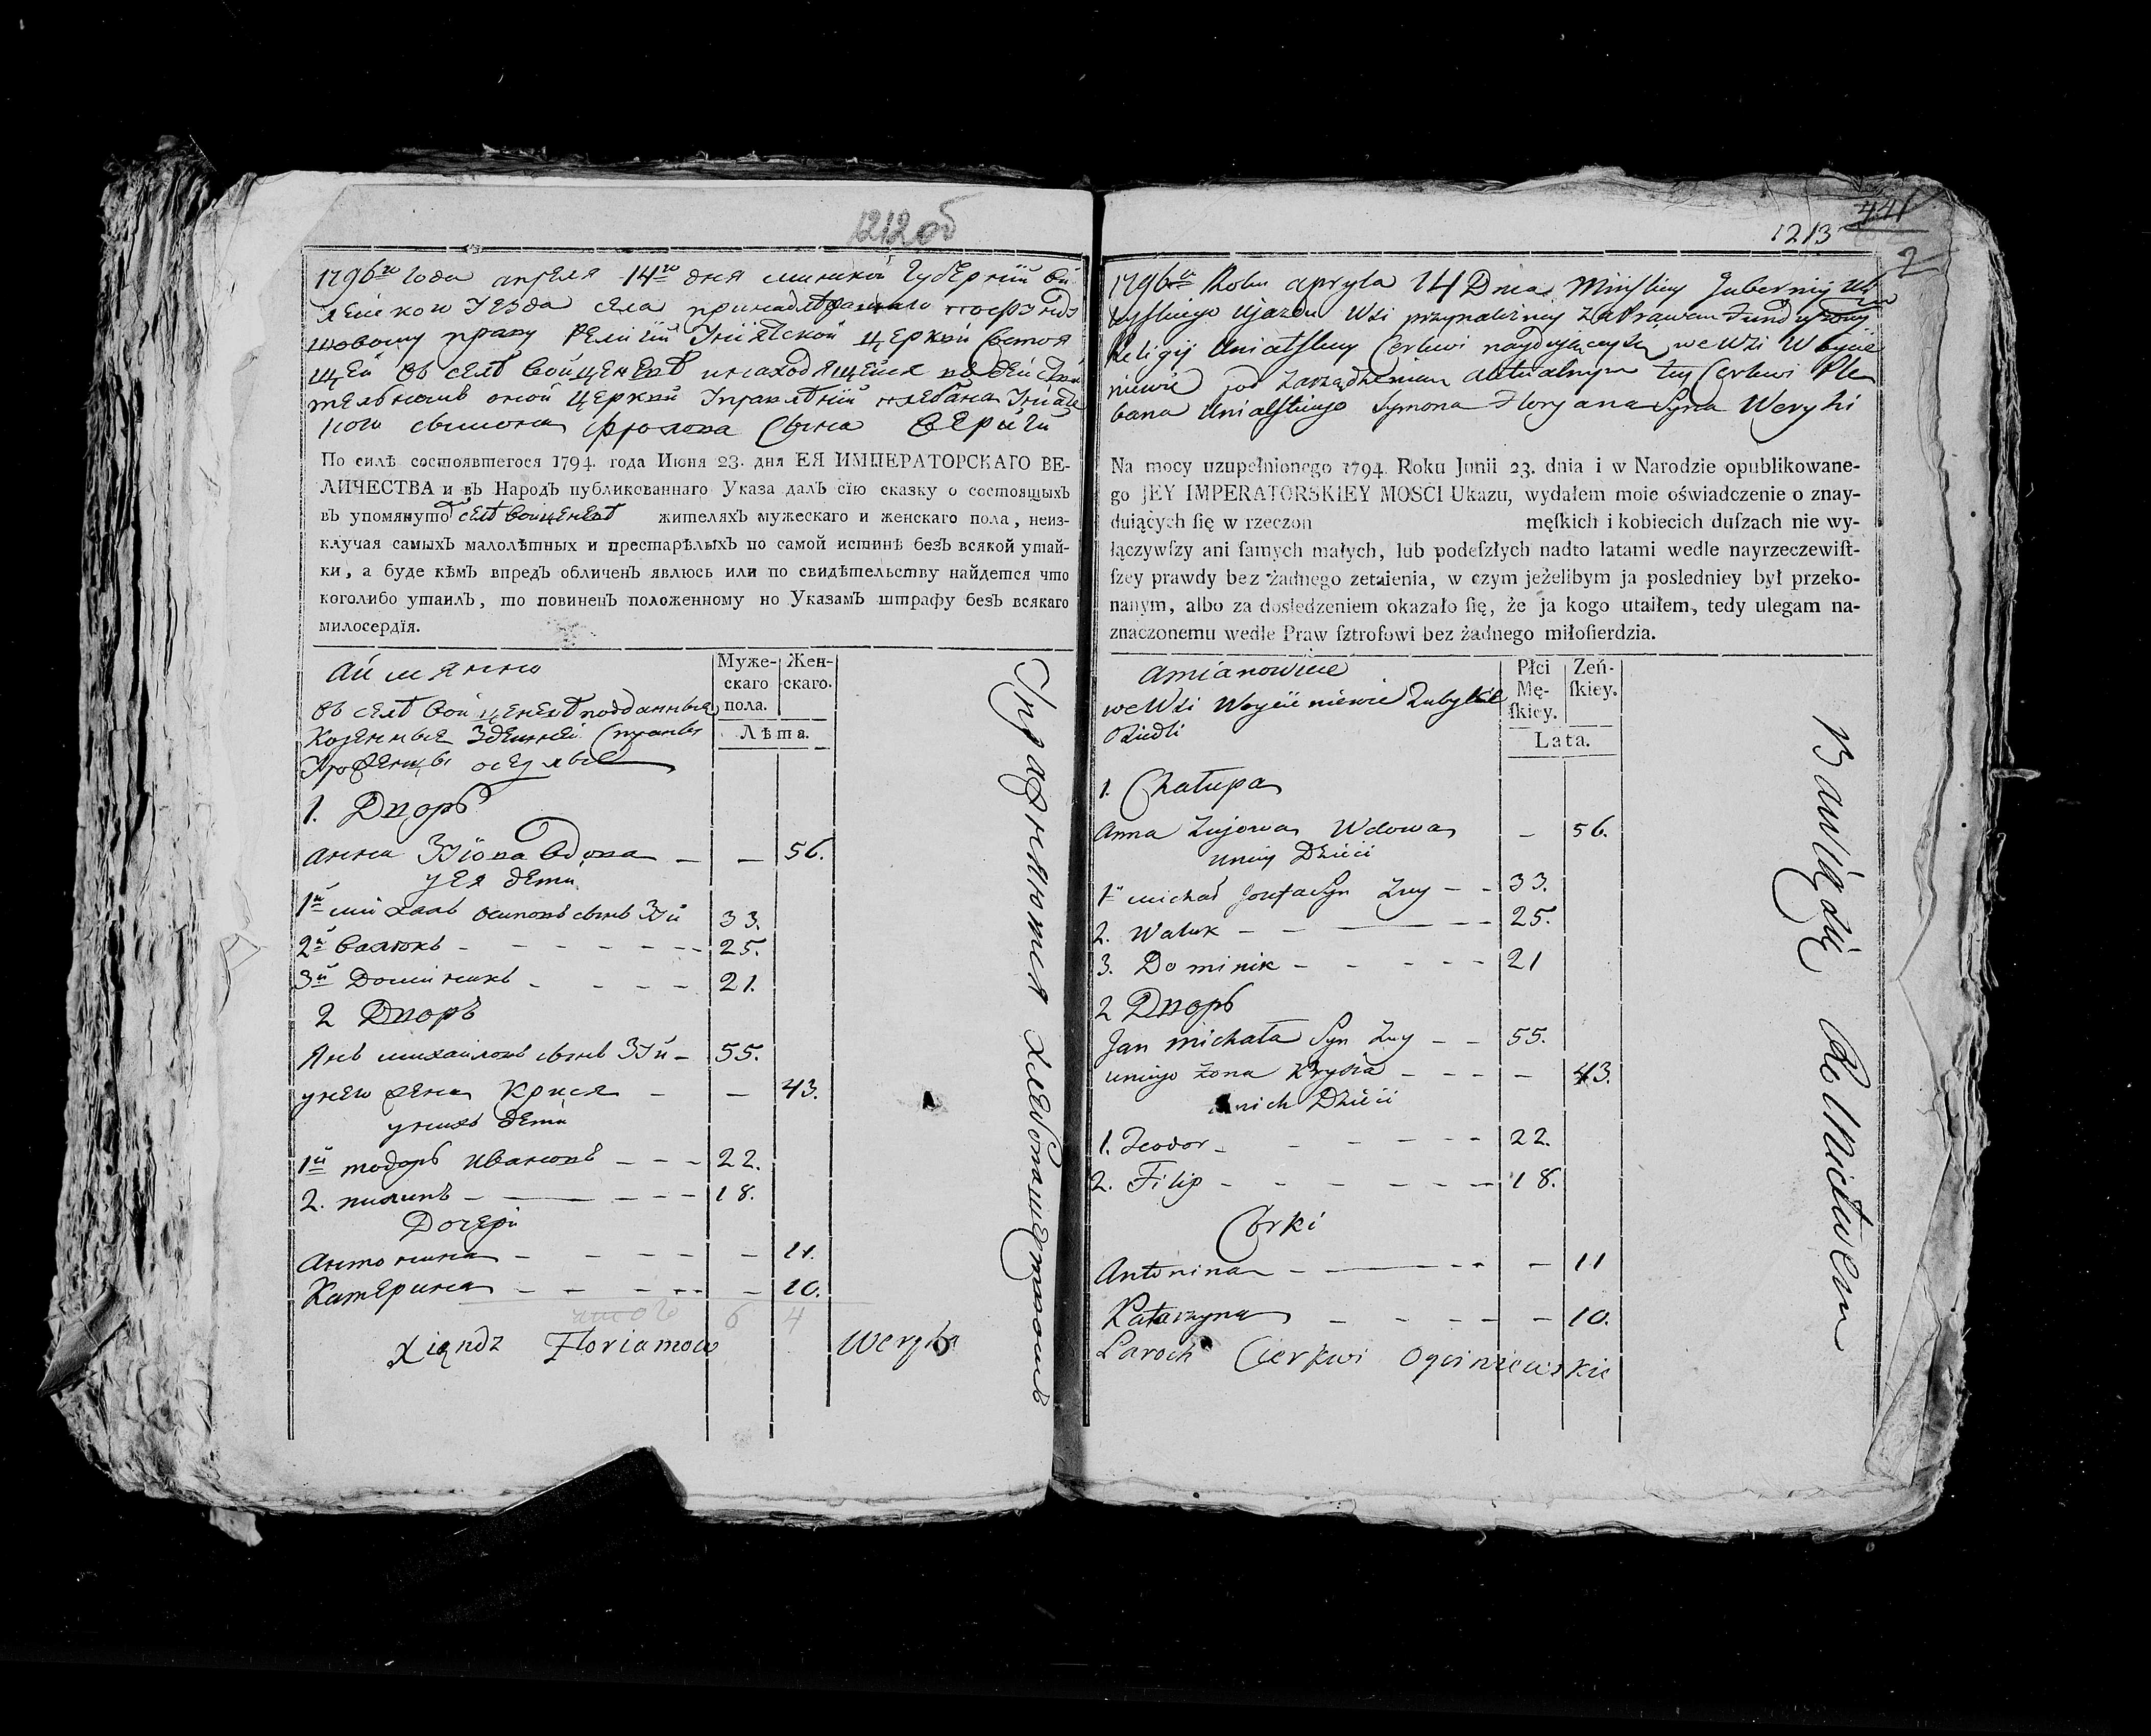 1212 об
1796го года апреля 14го дня минской губернїи ви
лейкой уезда села принадлежащаго пофунду
шовому праву релиїи Унїятской церкви состоя
щей въ селѣ войценевѣ инаходящейся подействи
телнымъ оной церкви Управленїи плебана Унияц
кого сымона Сына Вериги
По силѣ состоявшегося 1794. года Июня 23. дня ЕЯ ИМПЕРАТОРСКАГО ВЕ-
ЛИЧЕСТВА и въ Народъ публикованнаго Указа далъ сїю сказку о состоящыхъ
въ упомянуто селѣ войценевѣ жителяхъ мужескаго и женскаго пола, неиз-
ключая самыхъ малолѣтныхъ и престарѣлыхъ по самой истинѣ безъ всякой утай-
ки, а буде кѣмъ впредъ обличенъ явлюсь или по свидѣтельству найдется что
коголибо утаилъ, то повиненъ положенному по Указамъ штрафу безъ всякаго
милосердїя.
Муже-скаго пола. Жен-скаго.
Лѣта.
аймянно
въ селѣ войценевѣ подданныя
оседлые
1. Дворъ
анна Зуйова вдова — — 56.
у ея дети
1й михалъ осиповъ сынъ Зуй 33.
2й валюкъ - - - - - - 25.
3й Доминикъ - - - - 21.
2 Дворъ
Янъ михайловъ сынъ Зуй - 55.
унего жена Крися - — 43.
унихъ дети
1й тодоръ ивановъ - - - 22.
2. пилипъ - - - - - 18.
Дочери
антонина - - - - - 11.
Катерина - - - - - 10.
итого 6 4
Xiąndz Floriamow Weryha
Упражняются хлебопашествомъ
441
1213
2
1796го Roku apryla 14 Dnia Minſkiey Gubernij Wi
leyſkiego ujazdu Wsi przynależney zaPrawem Funduszowym
Religij Uniatſkiey Cerkwi nayduiącey się weWsi Woycie
niewie pod zarządzeniem aktualnym tey Cerkwi Ple
bana Uniatſkiego Symona Floryana Syna Weryhi
Na mocy uzupełnionego 1794 Roku Junii 23. dnia i w Narodzie opublikowane-
go JEY IMPERATORSKIEY MOSCI Ukazu, wydałem moie oświadczenie o znay-
duiących ſię w rzeczon męſkich i kobiecich duſzach nie wy-
łączywſzy ani ſamych małych, lub podeſzłych nadto latami wedle nayrzeczewiſt-
ſzey prawdy bez żadnego zetaienia, w czym jeżelibym ja posledniey był przeko-
nanym, albo za dosledzeniem okazało ſię, że ja kogo utaiłem, tedy ulegam na-
znaczonemu wedle Praw ſztrofowi bez żadnego miłoſierdzia.
Płci Mę-ſkiey. Zeń-ſkiey.
Lata.
amianowicie
weWsi Woycieniewie
osiedli
1. Chałupa
Anna Zujowa Wdowa — 56.
uniey Dzieci
1й michał Jozefa Syn Zuy - - 33.
2. Waluk - - - - - 25.
3. Dominik - - - - - 21
2 Дворъ
Jan michała Syn Zuy - - 55.
uniego żona Krysia - - - — 43.
unich Dzieci
1. Teodor - - - - - 22.
2. Filip - - - - - - 18.
Corki
Antonina - - - - - 11
Katarzyna - - - - - 10.
Paroch Cierkwi
Bawią się Rolnictwem